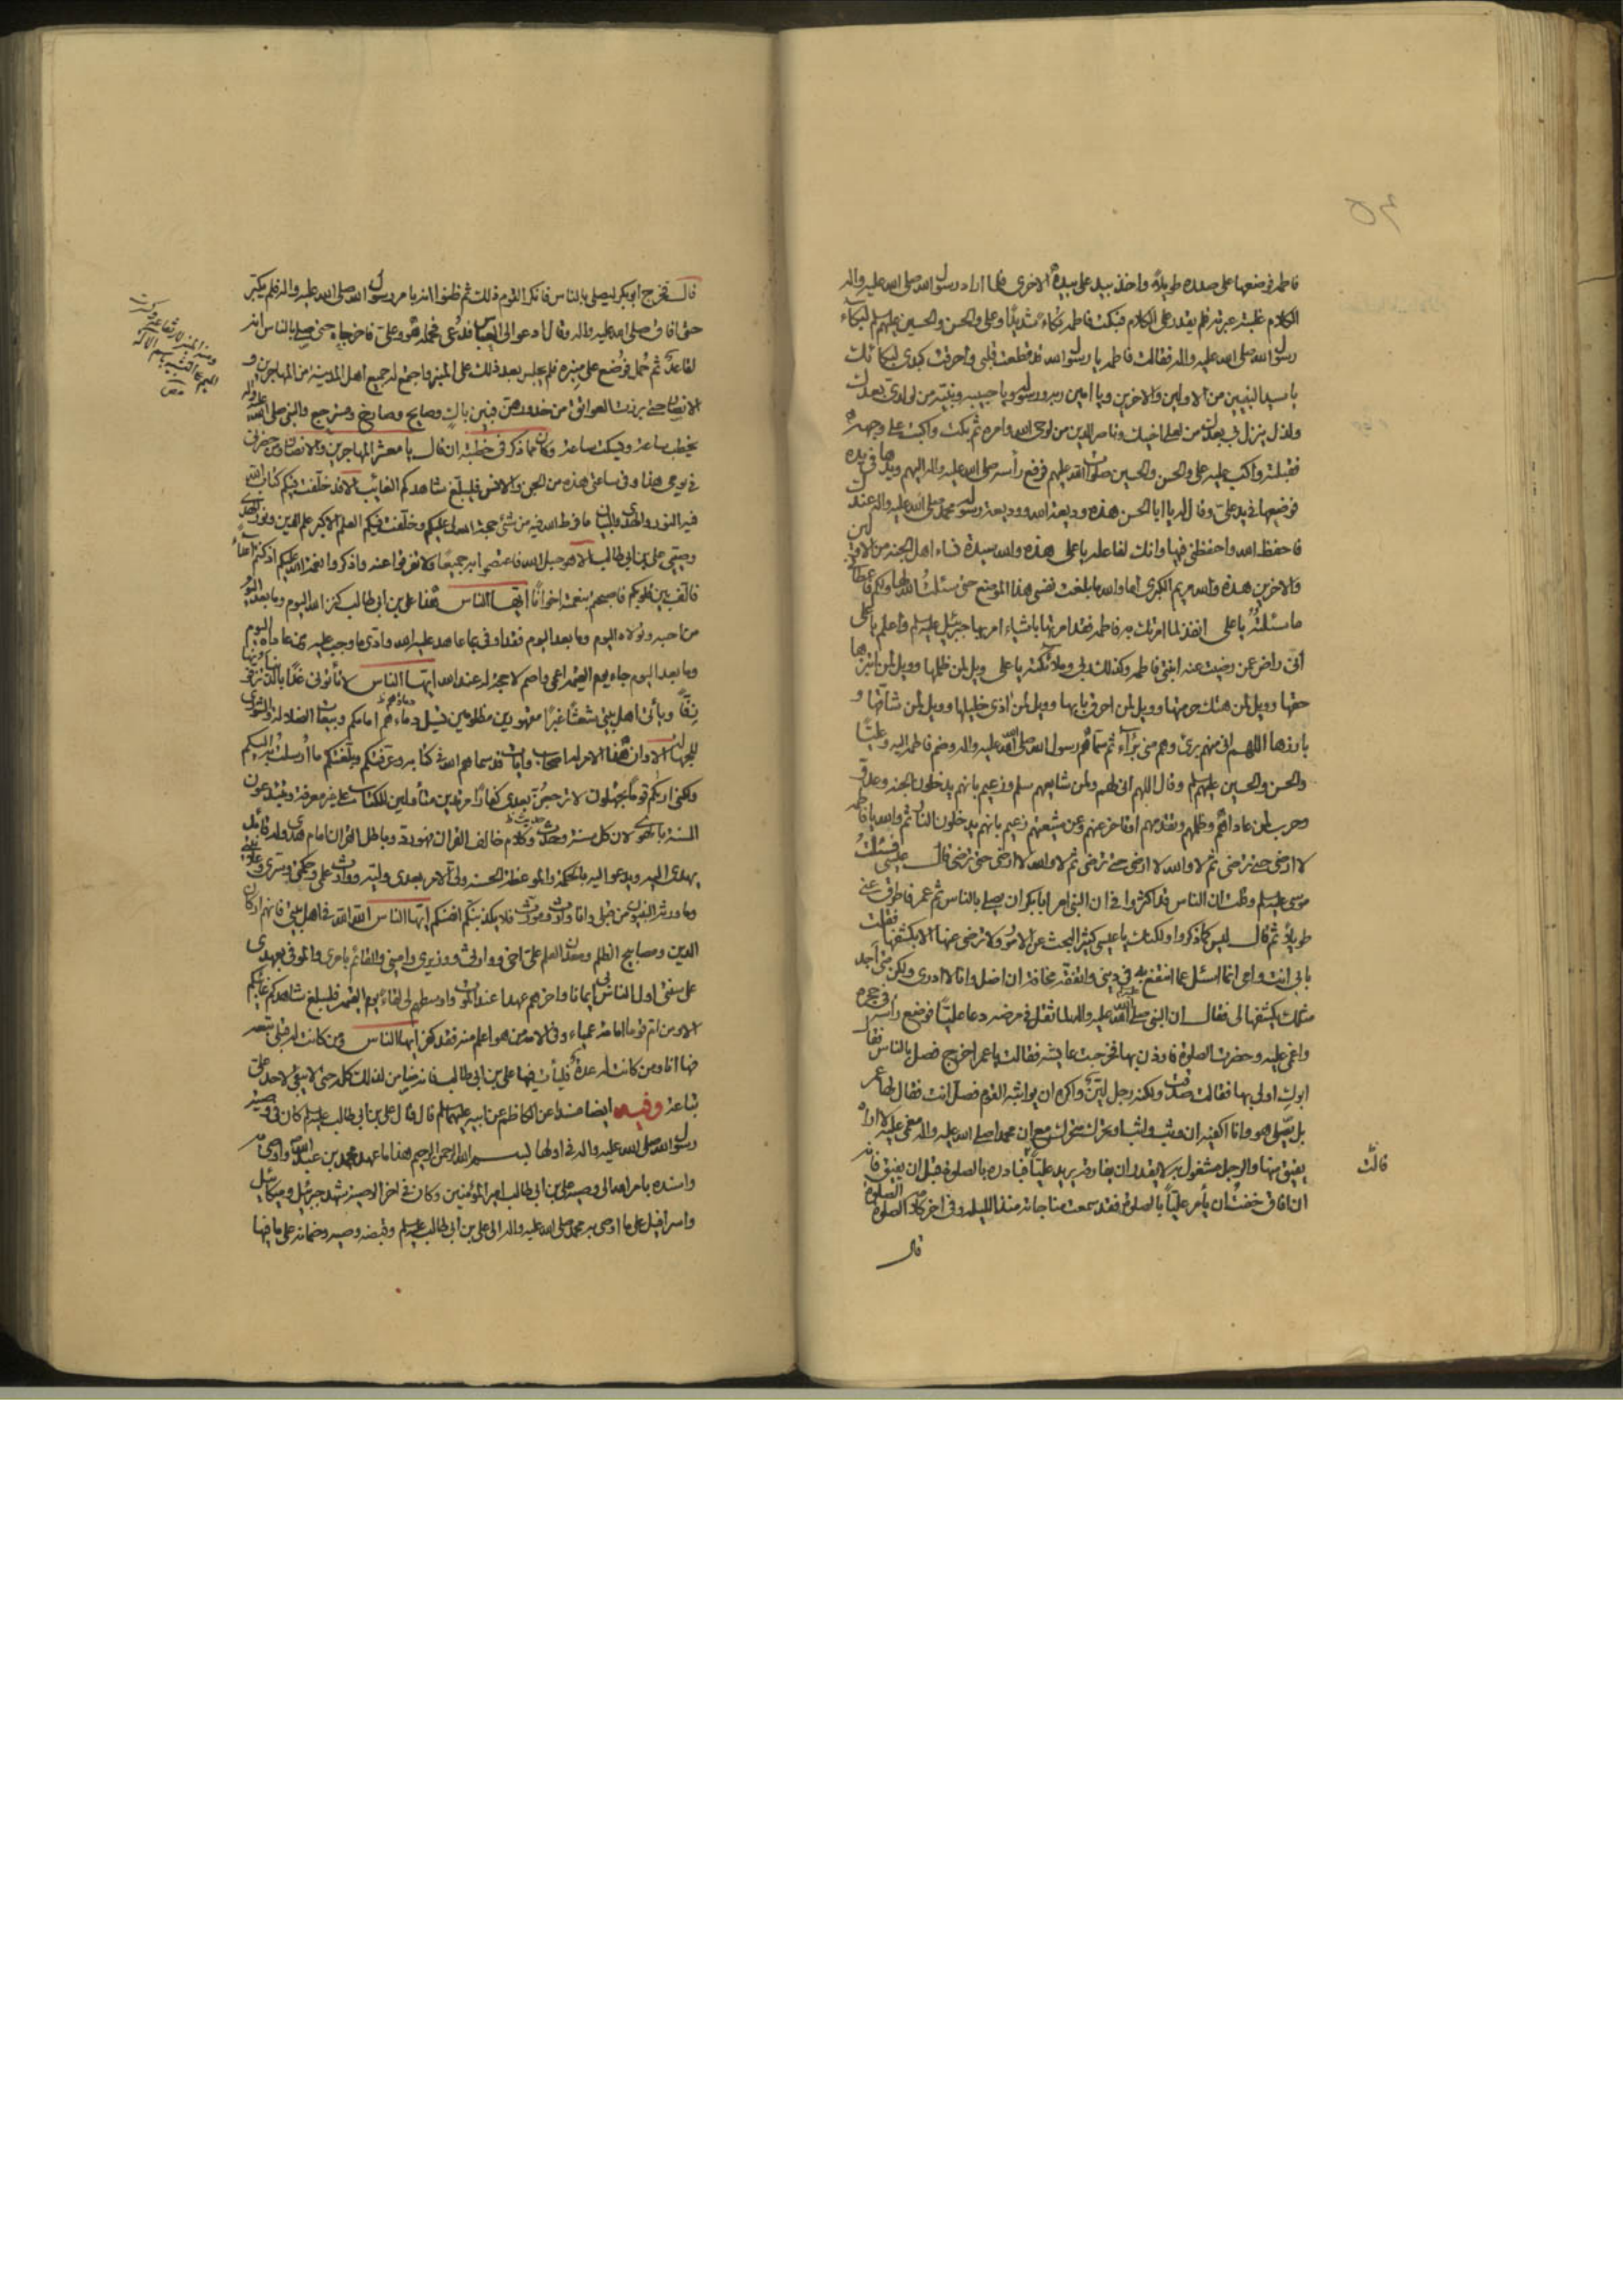 فاطمة فوضعها على صدره طويلاً واخذ بيد علي بيده الاخرى فلما اراد رسول الله صلى الله عليه واله
الكلام غلبته عبرته فلم يقدر على الكلام فبكت فاطمة بكاءً شديدًا وعلي والحسن والحسين عليهم السلم لبكاء
رسول الله صلى الله عليه واله فقالت فاطمة يا رسول الله قد قطعت قلبي واحرقت كبدي لبكائك
يا سيد النبيين من الاولين والاخرين ويا امين ربه ورسوله ويا حبيبه ونبيه من لولدي بعدك
ولذل ينزل بي بعدك من لعلي اخيك وناصر الدين من لوحي الله وامره ثم بكت واكبت على وجهه
فقبلته واكب عليه علي والحسن والحسين صلوات الله عليهم فرفع رأسه صلى الله عليه واله اليهم ويدها في يده
فوضعها في يد علي وقال له يا ابا الحسن هذه وديعة الله ووديعة رسوله محمد صلى الله عليه واله عندك
فاحفظ الله واحفظني فيها وانك لفاعله يا علي هذه والله سيدة نساء اهل الجنة من الاولين
والاخرين هذه والله مريم الكبرى اما والله ما بلغت نفسي هذا الموضع حتى سئلت الله لها ولكم فاعطاني
ما سئلته يا علي انفذ لما امرتك به فاطمة فقد امرتها باشياء امر بها جبرئيل عليه السلم واعلم يا علي
اني راض عمن رضيت عنه ابنتي فاطمة وكذلك ربي وملائكته يا علي ويل لمن ظلمها وويل لمن ابتزها
حقها وويل لمن هتك حرمتها وويل لمن احرق بابها وويل لمن اذى خليلها وويل لمن شاقها و
بارزها اللهم اني منهم برئ وهم مني برآء ثم سماهم رسول الله صلى الله عليه واله وضم فاطمة اليه وعليًا
والحسن والحسين عليهم السلم وقال اللهم اني لهم ولمن شايعهم سلم وزعيم بانهم يدخلون الجنة وعدو
وحرب لمن عاداهم وظلمهم وتقدمهم او تاخر عنهم وعن شيعتهم زعيم بانهم يدخلون النار ثم والله يا فاطمة
لا ارضى حتى ترضي ثم لا والله لا ارضى حتى ترضي ثم لا والله لا ارضى حتى ترضي قال عيسى فسئلت
موسى عليه السلم وقلت ان الناس قد اكثروا في ان النبي امر ابا بكر ان يصلي بالناس ثم عمر فاطرق عني
طويلاً ثم قال ليس كما ذكروا ولكنك يا عيسى كثير البحث عن الامور ولا ترضى عنها الا بكشفها فقلت
بابي انت وامي انما اسئل عما انتفع به في ديني واتفقه مخافة ان اضل وانا لا ادري ولكن متى اجد
مثلك يكشفها لي فقال ان النبي صلى الله عليه واله لما ثقل في مرضه دعا عليًا فوضع رأسه في حجره
واغمي عليه وحضرت الصلوة فاوذن بها فخرجت عايشة فقالت يا عمر اخرج فصل بالناس فقال
ابوك اولى بها فقالت صدقت ولكنه رجل لين واكره ان يواثبه القوم فصل انت فقال لها عمر
بل يصلي هو وانا اكفيه ان وثب واثب او تحرك متحرك مع ان محمدا صلى الله عليه واله مغمى عليه لا اراه
يفيق منها والرجل مشغول به لا يقدر ان يفارقه يريد عليًا فبادره بالصلوة قبل ان يفيق فانه
ان افاق خفت ان يأمر عليًا بالصلوة فقد سمعت مناجاته منذ الليلة وفي اخر كلامه الصلوة الصلوة
قالت
قال
قال فخرج ابو بكر ليصلي بالناس فانكر القوم ذلك ثم ظنوا انه بامر رسول الله صلى الله عليه واله فلم يكبر
حتى افاق صلى الله عليه واله وقال ادعوا الي العباس فدعي فحمله هو وعلي فاخرجاه حتى صلى بالناس انه
لقاعد ثم حمل فوضع على منبره فلم يجلس بعد ذلك على المنبر واجتمع له جميع اهل المدينة من المهاجرين و
الانصار حتى برزت العواتق من خدورهن فبين باك وصايح وصارخ ومسترجع والنبي صلى الله عليه واله
يخطب ساعة ويسكت ساعة وكان مما ذكر في خطبته ان قال يا معشر المهاجرين والانصار ومن حضرني
في يومي هذا وفي ساعتي هذه من الجن والانس فليبلغ شاهدكم الغائب الا قد خلفت فيكم كتاب الله
فيه النور والهدى والبيان ما فرط الله فيه من شئ حجة الله لي عليكم وخلفت فيكم العلم الاكبر علم الدين ونور الهدى
وصيي علي بن ابي طالب الا هو حبل الله فاعتصموا به جميعًا ولا تفرقوا عنه واذكروا نعمة الله عليكم اذ كنتم اعداءً
فالف بين قلوبكم فاصبحتم بنعمته اخوانًا ايها الناس هذا علي بن ابي طالب كنز الله اليوم وما بعد اليوم
من احبه وتولاه اليوم وما بعد اليوم فقد اوفى بما عاهد عليه الله وادى ما وجب عليه ومن عاداه اليوم
وما بعد اليوم جاء يوم القيمة اعمى واصم لا حجة له عند الله ايها الناس لا تأتوني غدًا بالدنيا تزفونها
زفًا ويأتي اهل بيتي شعثًا غبرًا مقهورين مظلومين تسيل دماءهم امامكم وبيعات الضلالة والشورى
للجهالة الا وان هذا الامر له اصحاب وايات قد سماهم الله في كتابه وعرفتكم وبلغتكم ما ارسلت به اليكم
ولكني اراكم قومًا تجهلون لا ترجعن بعدي كفارًا مرتدين متأولين للكتاب على غير معرفة وتبتدعون
السنة بالهوى لان كل سنة وحدث وكلام خالف القران فهو رد وباطل القران امام هدى وله قائد
يهدي اليه ويدعو اليه بالحكمة والموعظة الحسنة ولي الامر بعدي وليه ووارث علمي وحكمتي وسري وعلانيتي
وما ورثه النبيون من قبلي وانا وارث ومورث فلا تكذبنكم انفسكم ايها الناس الله الله في اهل بيتي فانهم اركان
الدين ومصابيح الظلم ومعدن العلم علي اخي ووارثي ووزيري واميني والقائم بامري والموفي بعهدي
على سنتي اول الناس بي ايمانا واخرهم عهدا عند الموت واوسطهم لي لقاءً يوم القيمة فليبلغ شاهدكم غائبكم
الا ومن ام قوما امامة عمياء وفي الامة من هو اعلم منه فقد كفر ايها الناس ومن كانت له قبلي تبعة
فها انا ومن كانت له عدة فليأت فيها علي بن ابي طالب فانه ضامن لذلك كله حتى لا يبقى لاحد علي
تباعة وفيه ايضا مسندا عن الكاظم عن ابيه عليهما السلم قال قال علي بن ابي طالب عليه السلم كان في وصية
رسول الله صلى الله عليه واله في اولها بسم الله الرحمن الرحيم هذا ما عهد محمد بن عبد الله واوصى به
واسنده بامر الله الى وصيه علي بن ابي طالب امير المؤمنين وكان في اخر الوصية شهد جبرئيل وميكائيل
واسرافيل على ما اوصى به محمد صلى الله عليه واله الى علي بن ابي طالب عليه السلم وقبضه وصيه وضمانه على ما فيها